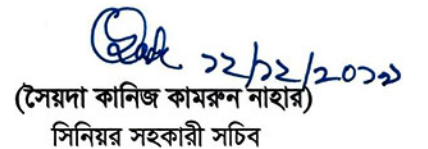 ১২/১২/২০১৯
(সৈয়দা কানিজ কামরুন নাহার)
সিনিয়র সহকারী সচিব